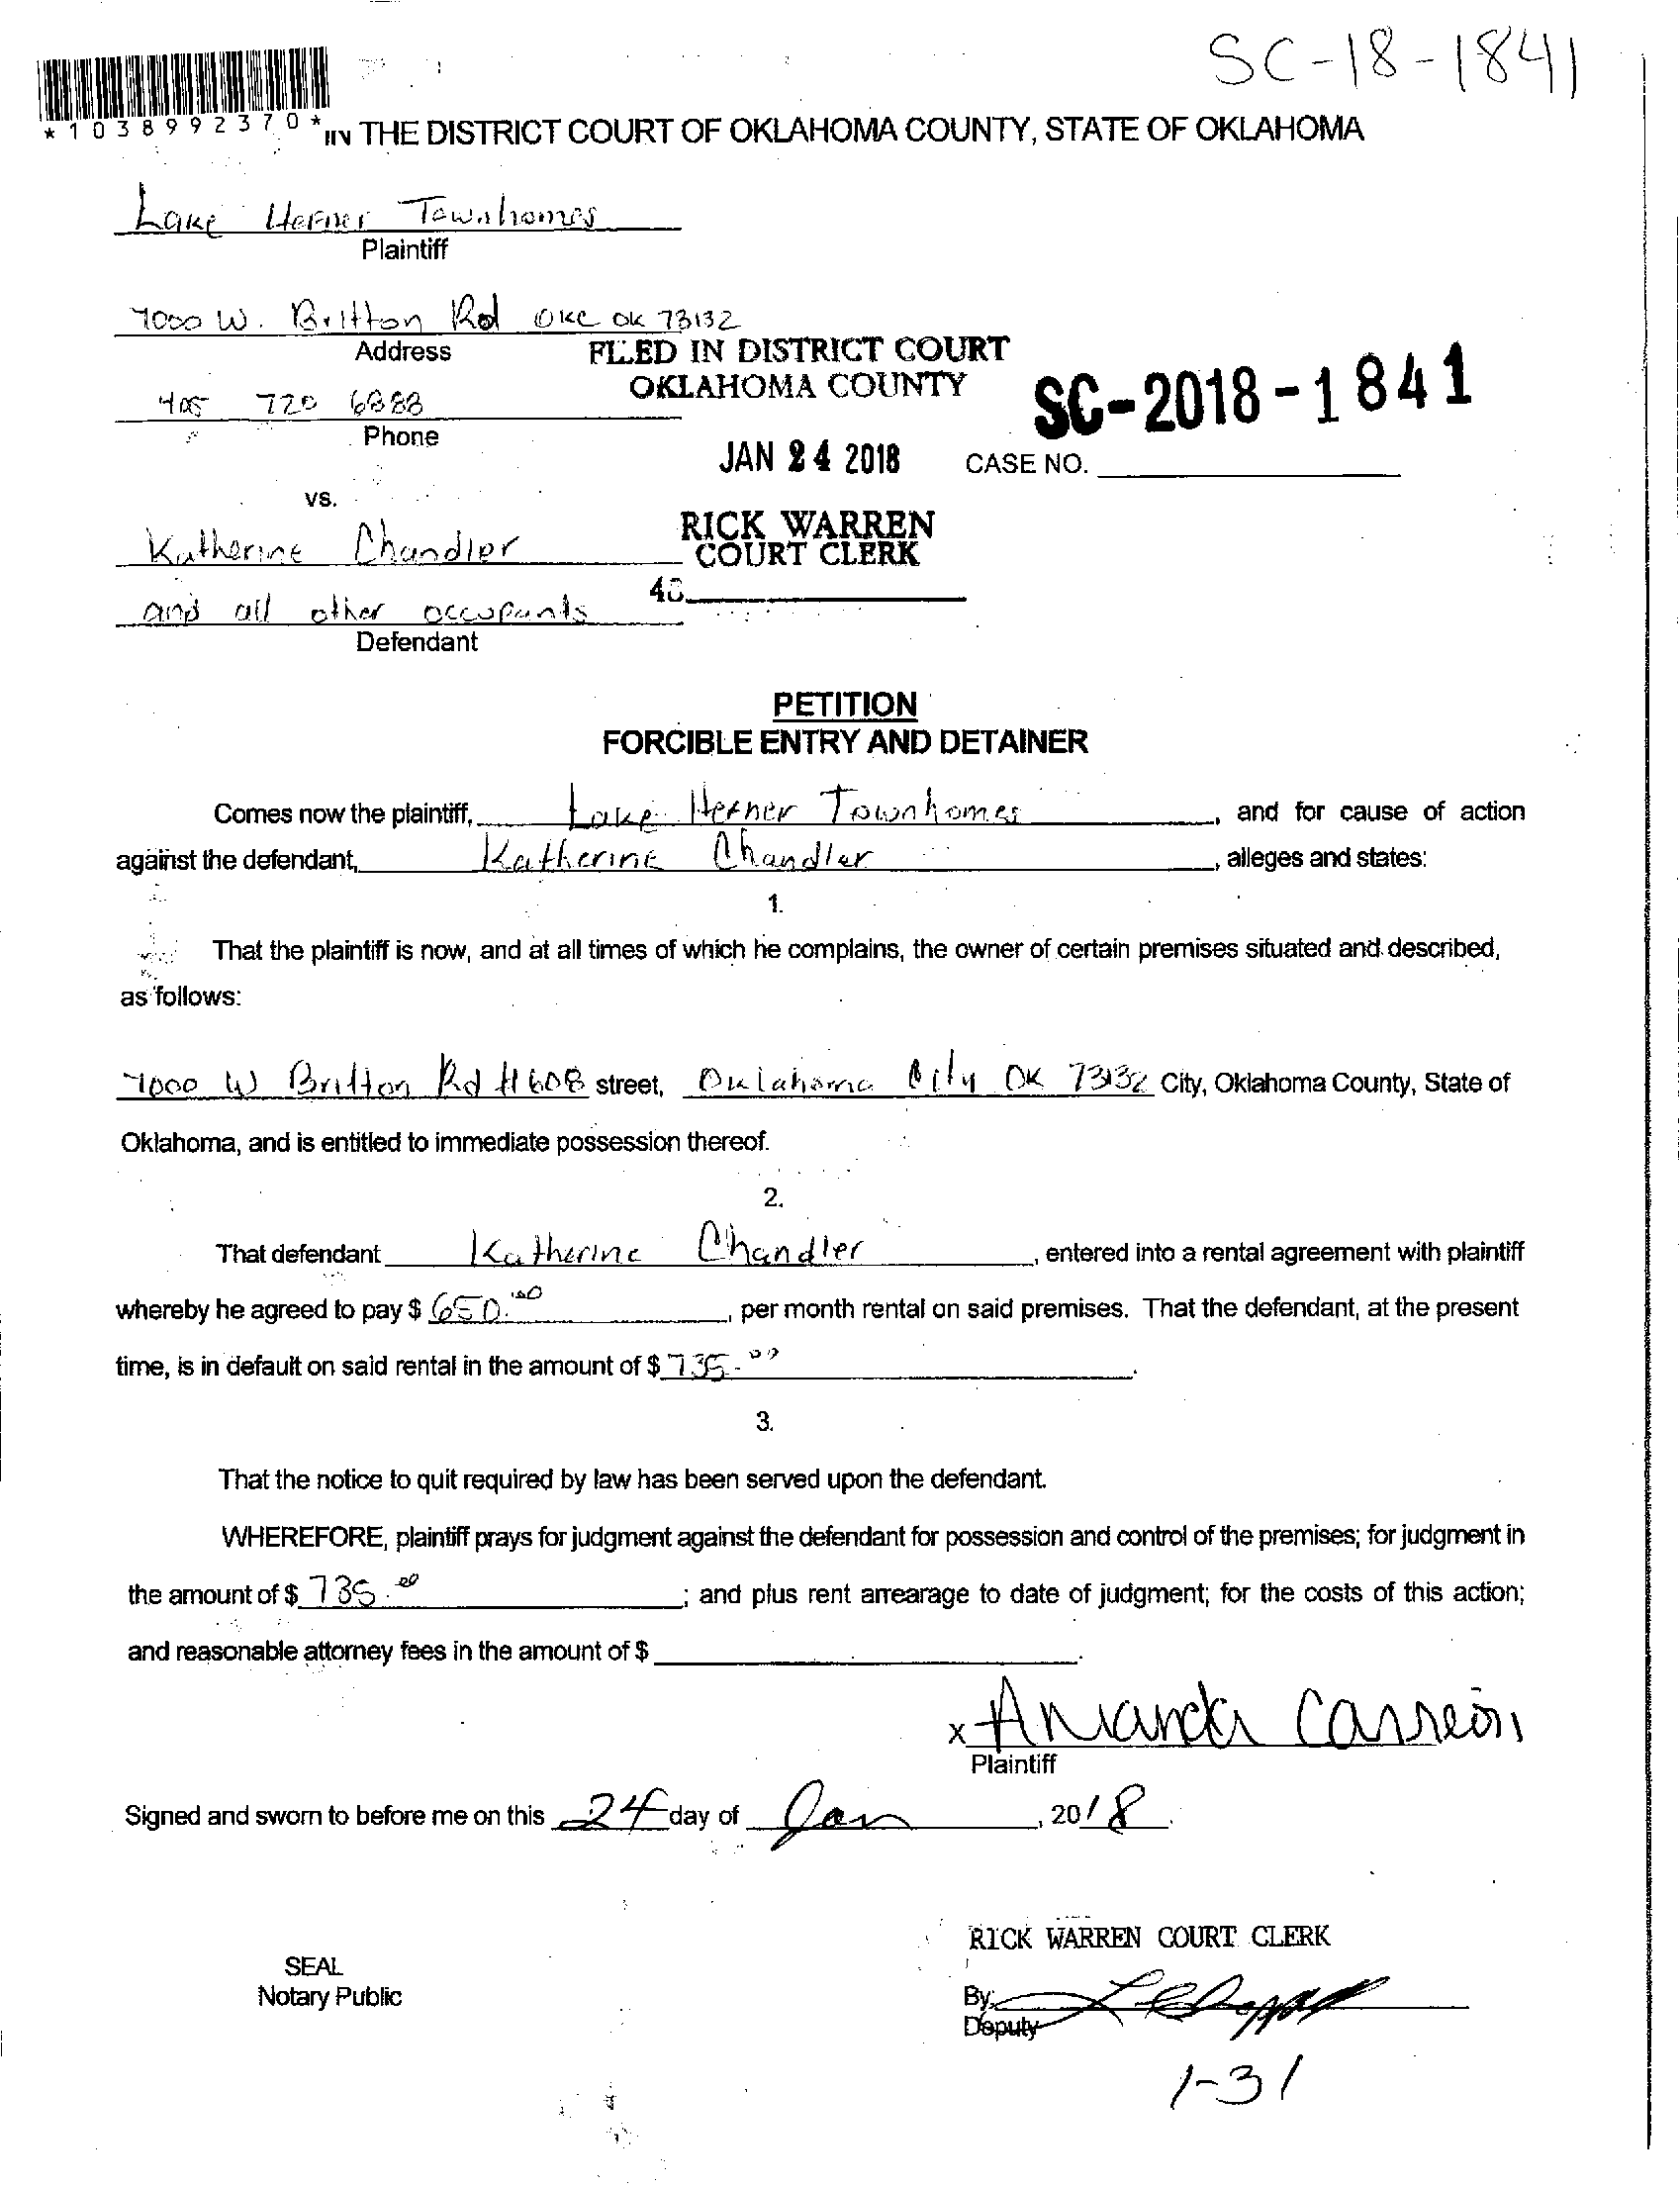 SC-18-1841
*1038992370*
IN THE DISTRICT COURT OF OKLAHOMA COUNTY, STATE OF OKLAHOMA
Lake Hefner Townhomes
Plaintiff
7000 W. Britton Rd OKC OK 73132
Address
FILED IN DISTRICT COURT
OKLAHOMA COUNTY
405 720 6888
Phone
SC-2018-1841
JAN 24 2018
CASE NO.
vs.
RICK WARREN
COURT CLERK
Katherine Chandler
and all other occupants
Defendant
PETITION
FORCIBLE ENTRY AND DETAINER
Comes now the plaintiff, Lake Hefner Townhomes, and for cause of action
against the defendant, Katherine Chandler, alleges and states:
1.
That the plaintiff is now, and at all times of which he complains, the owner of certain premises situated and described,
as follows:
7000 W Britton Rd #608 street, Oklahoma City OK 73132 City, Oklahoma County, State of
Oklahoma, and is entitled to immediate possession thereof.
2.
That defendant Katherine Chandler, entered into a rental agreement with plaintiff
whereby he agreed to pay $ 650.00, per month rental on said premises. That the defendant, at the present
time, is in default on said rental in the amount of $ 735.00.
3.
That the notice to quit required by law has been served upon the defendant.
WHEREFORE, plaintiff prays for judgment against the defendant for possession and control of the premises; for judgment in
the amount of $ 735.00; and plus rent arrearage to date of judgment; for the costs of this action;
and reasonable attorney fees in the amount of $
x Amanda Carreon
Plaintiff
Signed and sworn to before me on this 24 day of Jan, 2018.
RICK WARREN COURT CLERK
SEAL
Notary Public
By:
Deputy
1-31